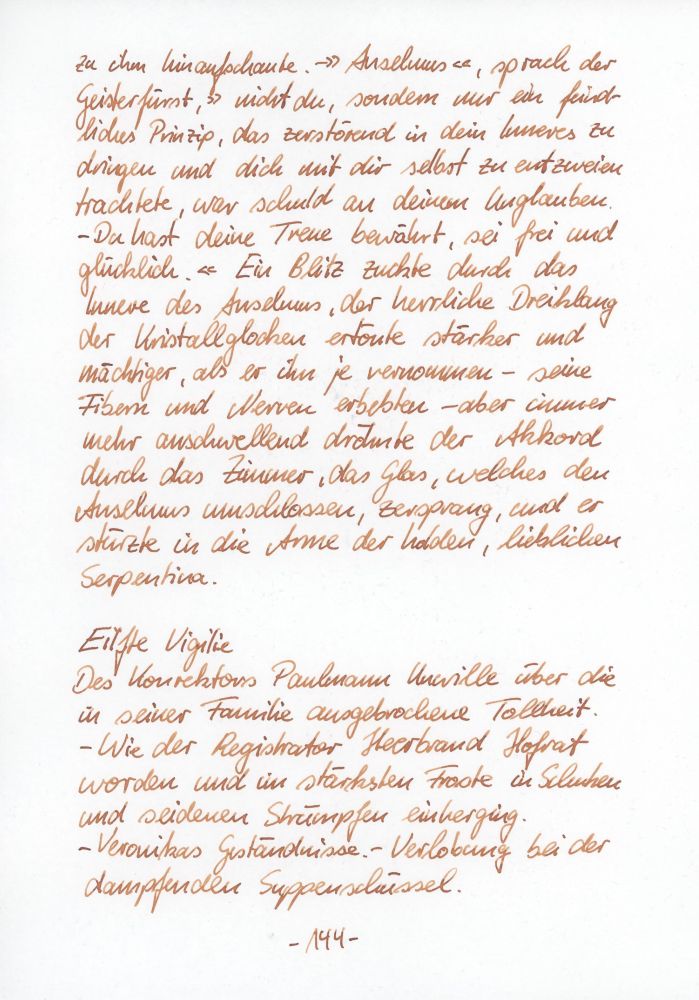 zu ihm hinaufschaute. -» Anselmus «, sprach der
Geisterfürst, » nicht du, sondern nur ein feind-
liches Prinzip, das zerstörend in dein Inneres zu
dringen und dich mit dir selbst zu entzweien
trachtete, war schuld an deinem Unglauben.
- Du hast deine Treue bewährt, sei frei und
glücklich. « Ein Blitz zuckte durch das
Innere des Anselmus, der herrliche Dreiklang
der Kristallglocken ertönte stärker und
mächtiger, als er ihn je vernommen - seine
Fibern und Nerven erbebten - aber immer
mehr anschwellend dröhnte der Akkord
durch das Zimmer, das Glas, welches den
Anselmus umschlossen, zersprang, und er
stürzte in die Arme der holden, lieblichen
Serpentina.
Eilfte Vigilie
Des Konrektors Paulmann Unwille über die
in seiner Familie ausgebrochene Tollheit.
- Wie der Registrator Heerbrand Hofrat
worden und im stärksten Froste in Schuhen
und seidenen Strümpfen einherging.
- Veronikas Geständnisse. - Verlobung bei der
dampfenden Suppenschüssel.
- 144 -